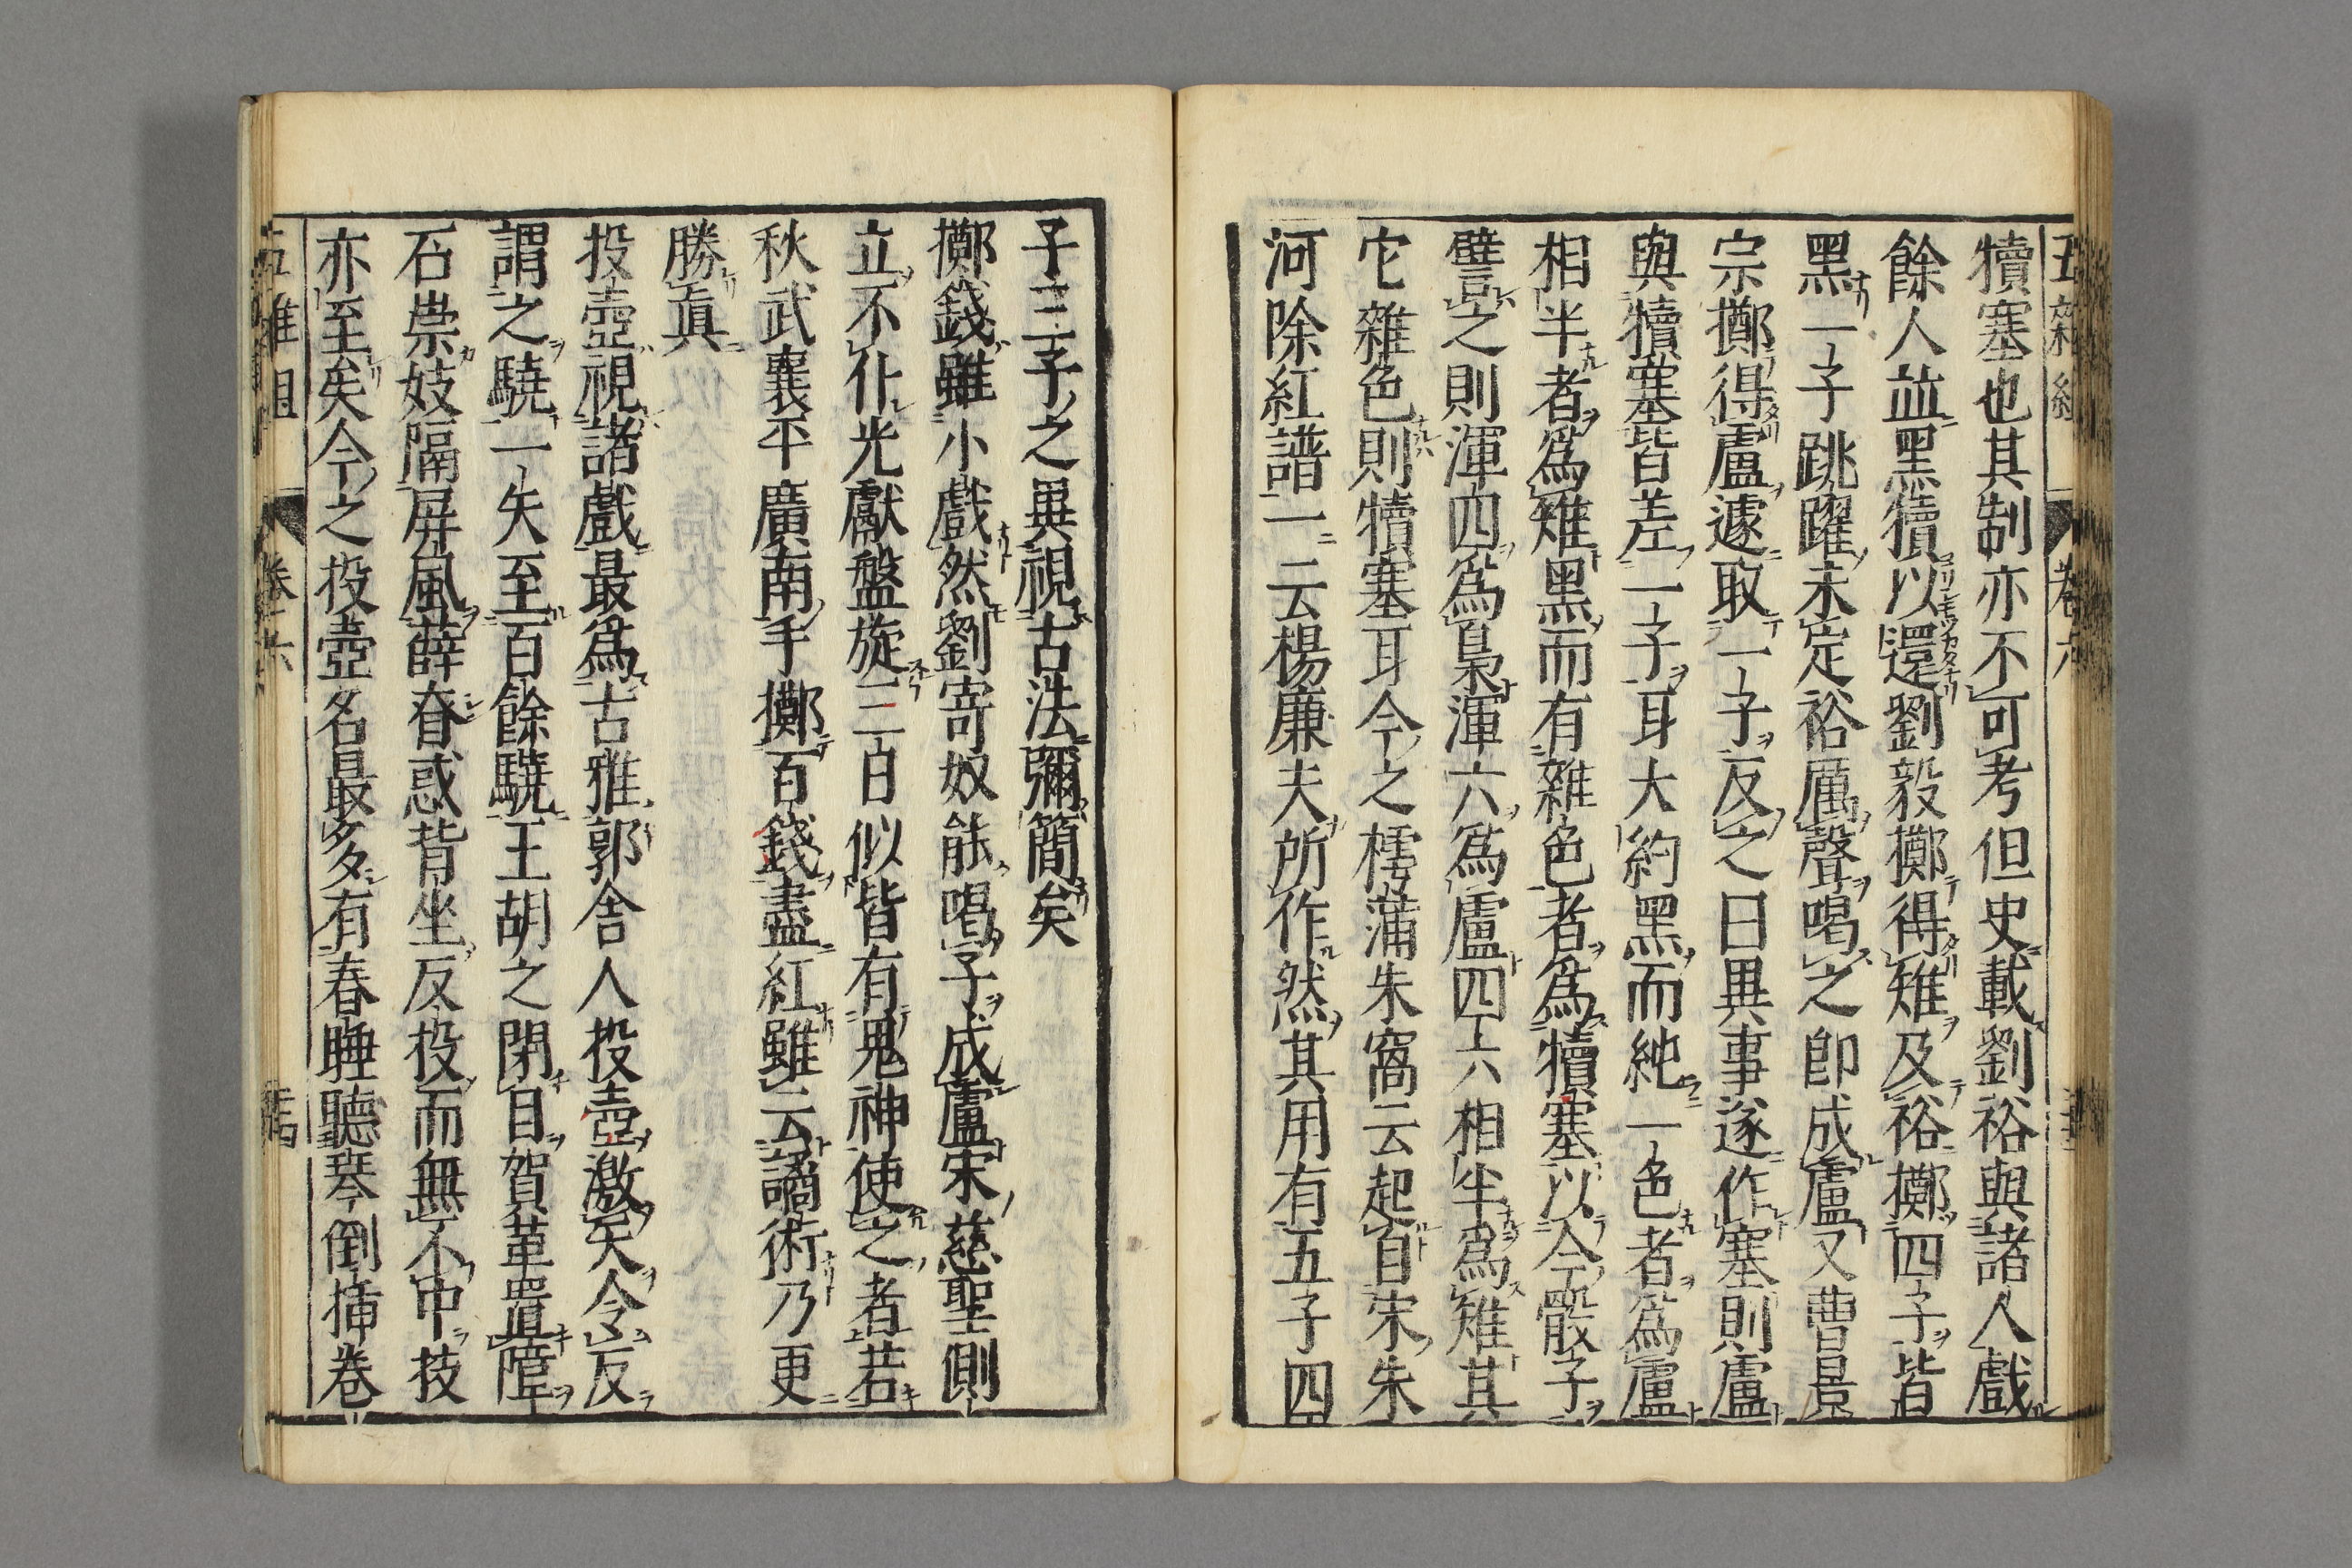 犢塞也其制亦不可考但史載劉裕與諸人戲
餘人並黑犢以還劉毅擲得雉及裕擲四子皆
黑一子跳躍未定裕厲聲喝之即成盧又曹景
宗擲得盧遽取一子反之曰異事遂作塞則盧
與犢塞皆差一子耳大約黑而純一色者為盧
相半者為雉黑而有雜色者為犢塞以今骰子
譬之則渾四為梟渾六為盧四六相半為雉其
它雜色則犢塞耳今之樗蒲朱窩云起自宋朱
河除紅譜一云楊廉夫所作然其用有五子四
子三子之異視古法彌簡矣
擲錢雖小戲然劉寄奴能喝子成盧宋慈聖側
立不仆光獻盤旋三日似皆有鬼神使之者若
秋武襄平廣南手擲百錢盡紅雖云譎術乃更
勝真
投壺視諸戲最為古雅郭舍人投壺激矢令反
謂之驍一矢至百餘驍王胡之閉目賀革置障
石崇妓隔屏風薛眘惑背坐反投而無不中技
亦至矣今之投壺名最多有春睡聽琴倒插卷
五雜組
卷六